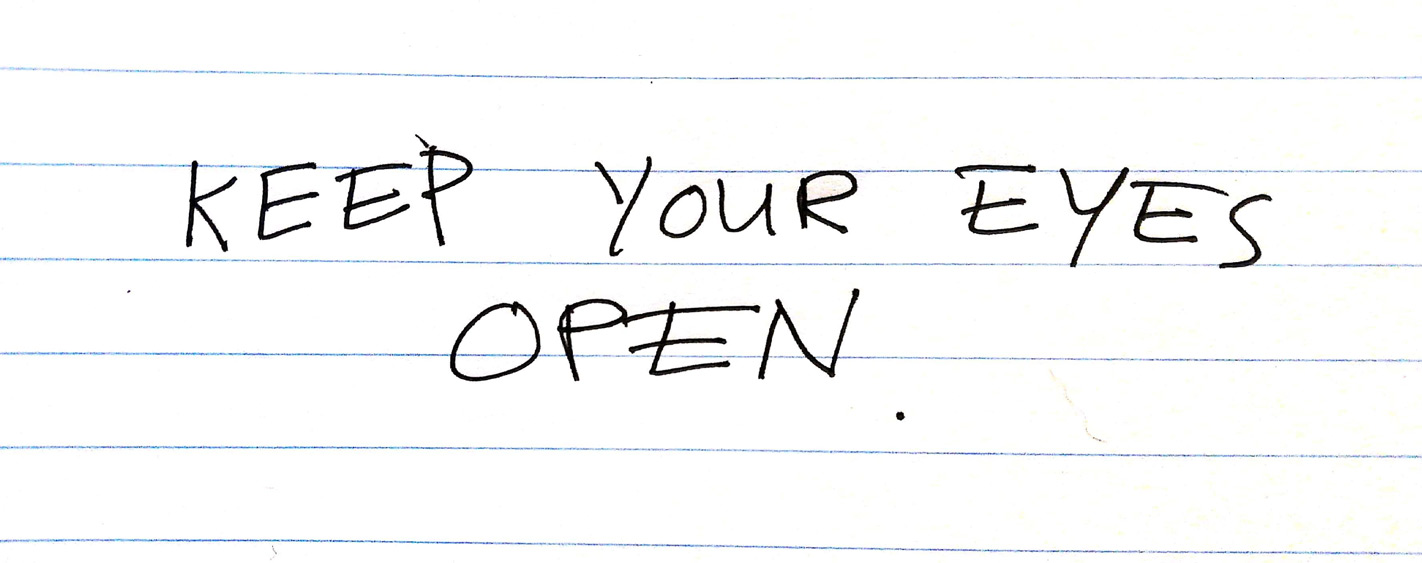 KEEP YOUR EYES
OPEN.